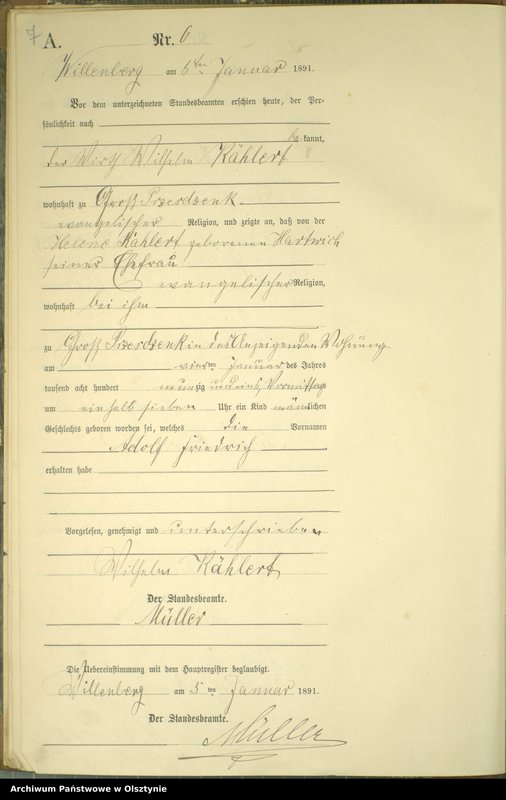 7
A.
Nr. 6
Willenberg am 6ten Januar 1891.
Vor dem unterzeichneten Standesbeamten erschien heute, der Per-
sönlichkeit nach
be kannt,
der Wirth Wilhelm Kählert
wohnhaft zu Groß
evangelischer Religion, und zeigte an, daß von der
Helene Kählert geborenen Hartwich
seiner Ehefrau
evangelischer Religion,
wohnhaft bei ihm
zu Groß in des Anzeigenden Wohnung
am vierten Januar des Jahres
tausend acht hundert neunzig und eins, Vormittags
um einhalb sieben Uhr ein Kind männlichen
Geschlechts geboren worden sei, welches die Vornamen
Adolf Friedrich
erhalten habe
Vorgelesen, genehmigt und unterschrieben
Wilhelm Kählert
Der Standesbeamte.
Müller
Die Uebereinstimmung mit dem Hauptregister beglaubigt.
Willenberg am 5 ten Januar 1891.
Der Standesbeamte.
Müller
Archiwum Państwowe w Olsztynie